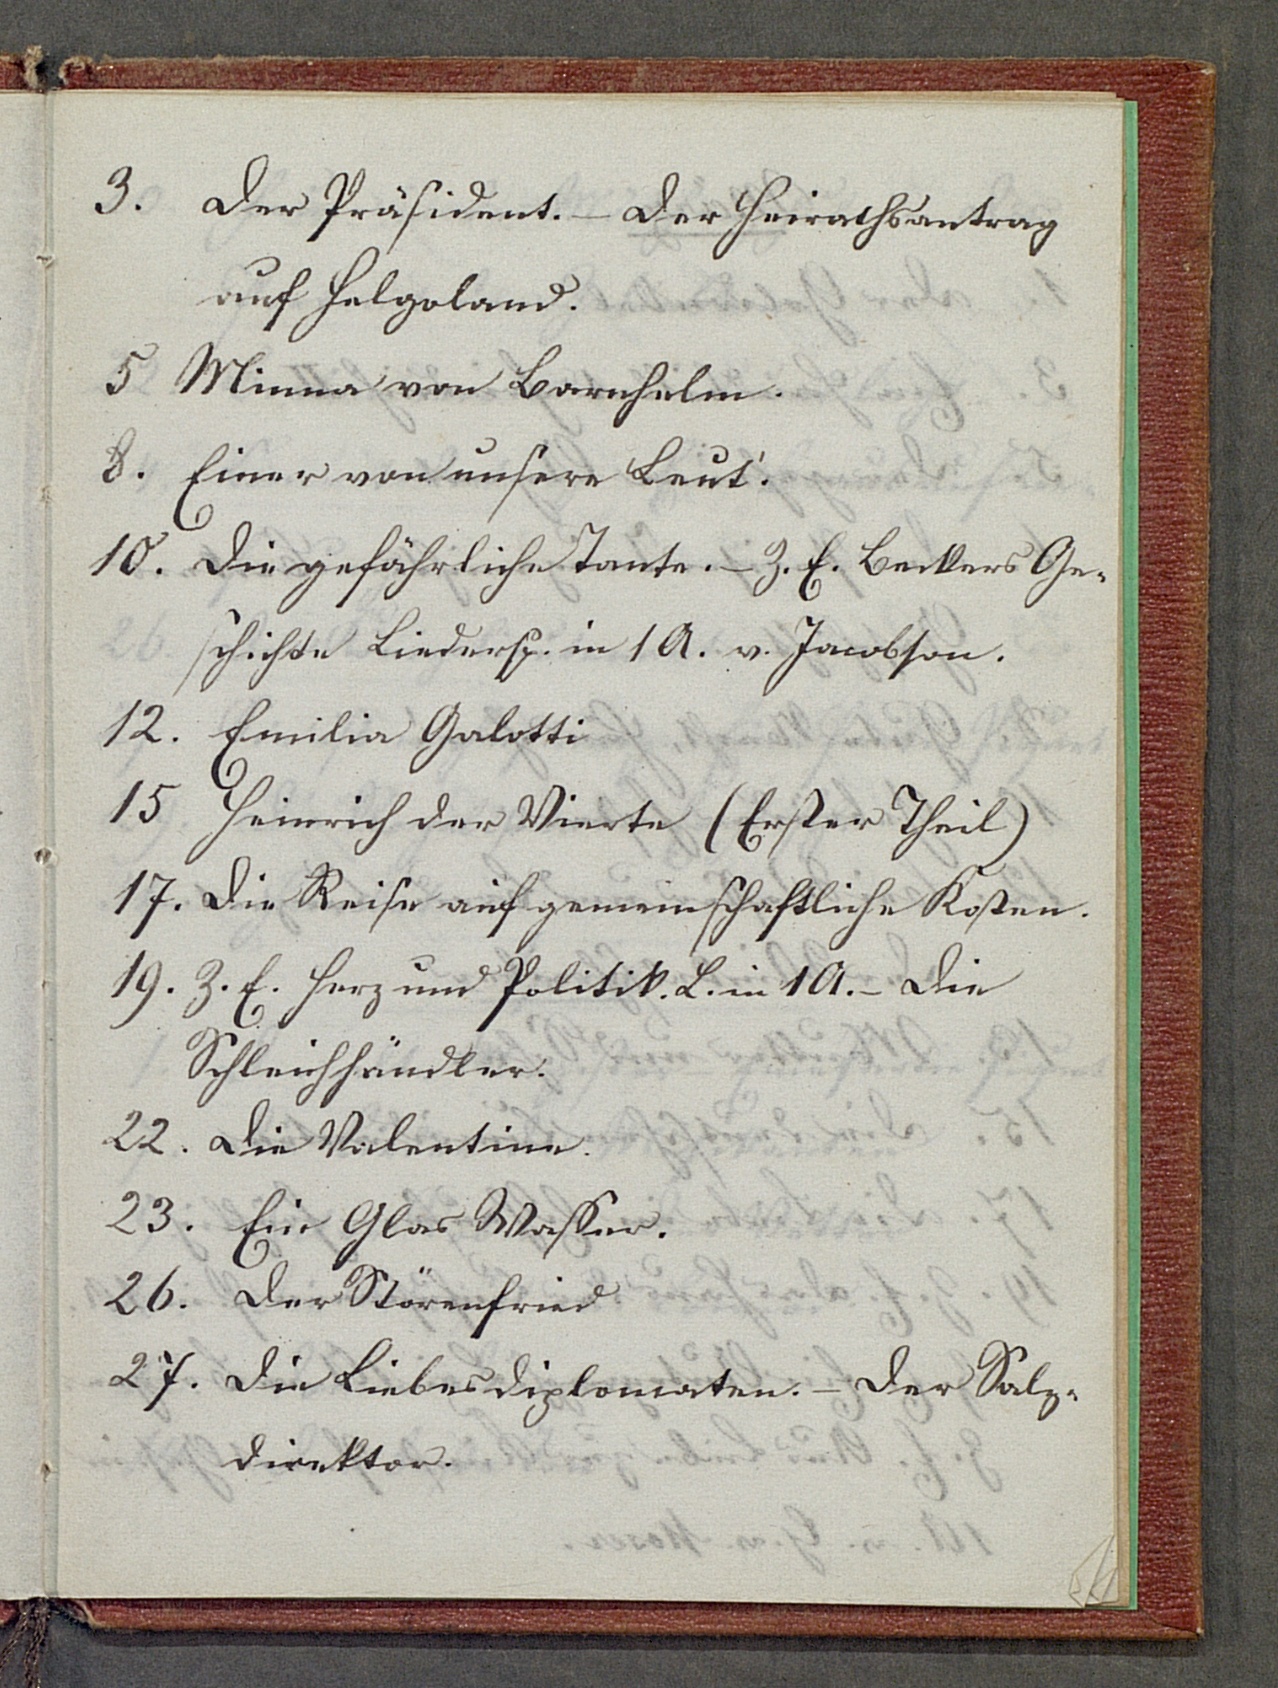 3. Der Präsident. – Der Heirathsantrag
auf Helgoland.
5 Minna von Barnhelm.
8. Einer von unsere Leut'.
10. Die gefährliche Tante. – Z. E. Beckers Ge-
schichte Liedersp. in 1 A. v. Jacobson.
12. Emilia Galotti
15 Heinrich der Vierte (Erster Theil)
17. Die Reise auf gemeinschaftliche Kosten.
19. Z. E. Herz und Politik. L. in 1 A. – Die
Schleichhändler.
22. Die Valentine.
23. Ein Glas Wasser.
26. Der Störenfried
27. Die Liebesdiplomaten. – Der Salz-
direktor.